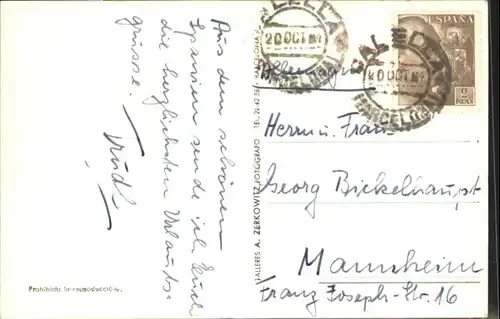 Aus dem schönen
Spanien sende ich Euch
die herzlichsten Urlaubs-
grüsse!
Trudl
Prohibida la reproducción.
TALLERES A. ZERKOWITZ, FOTOGRAFO
CALELLA
20 OCT 54
(BARCELONA)
CALELLA
20 OCT 54
(BARCELONA)
ESPAÑA
2
PTAS
Herrn u. Frau
Georg Bickelhaupt
Mannheim
Franz Joseph-Str. 16